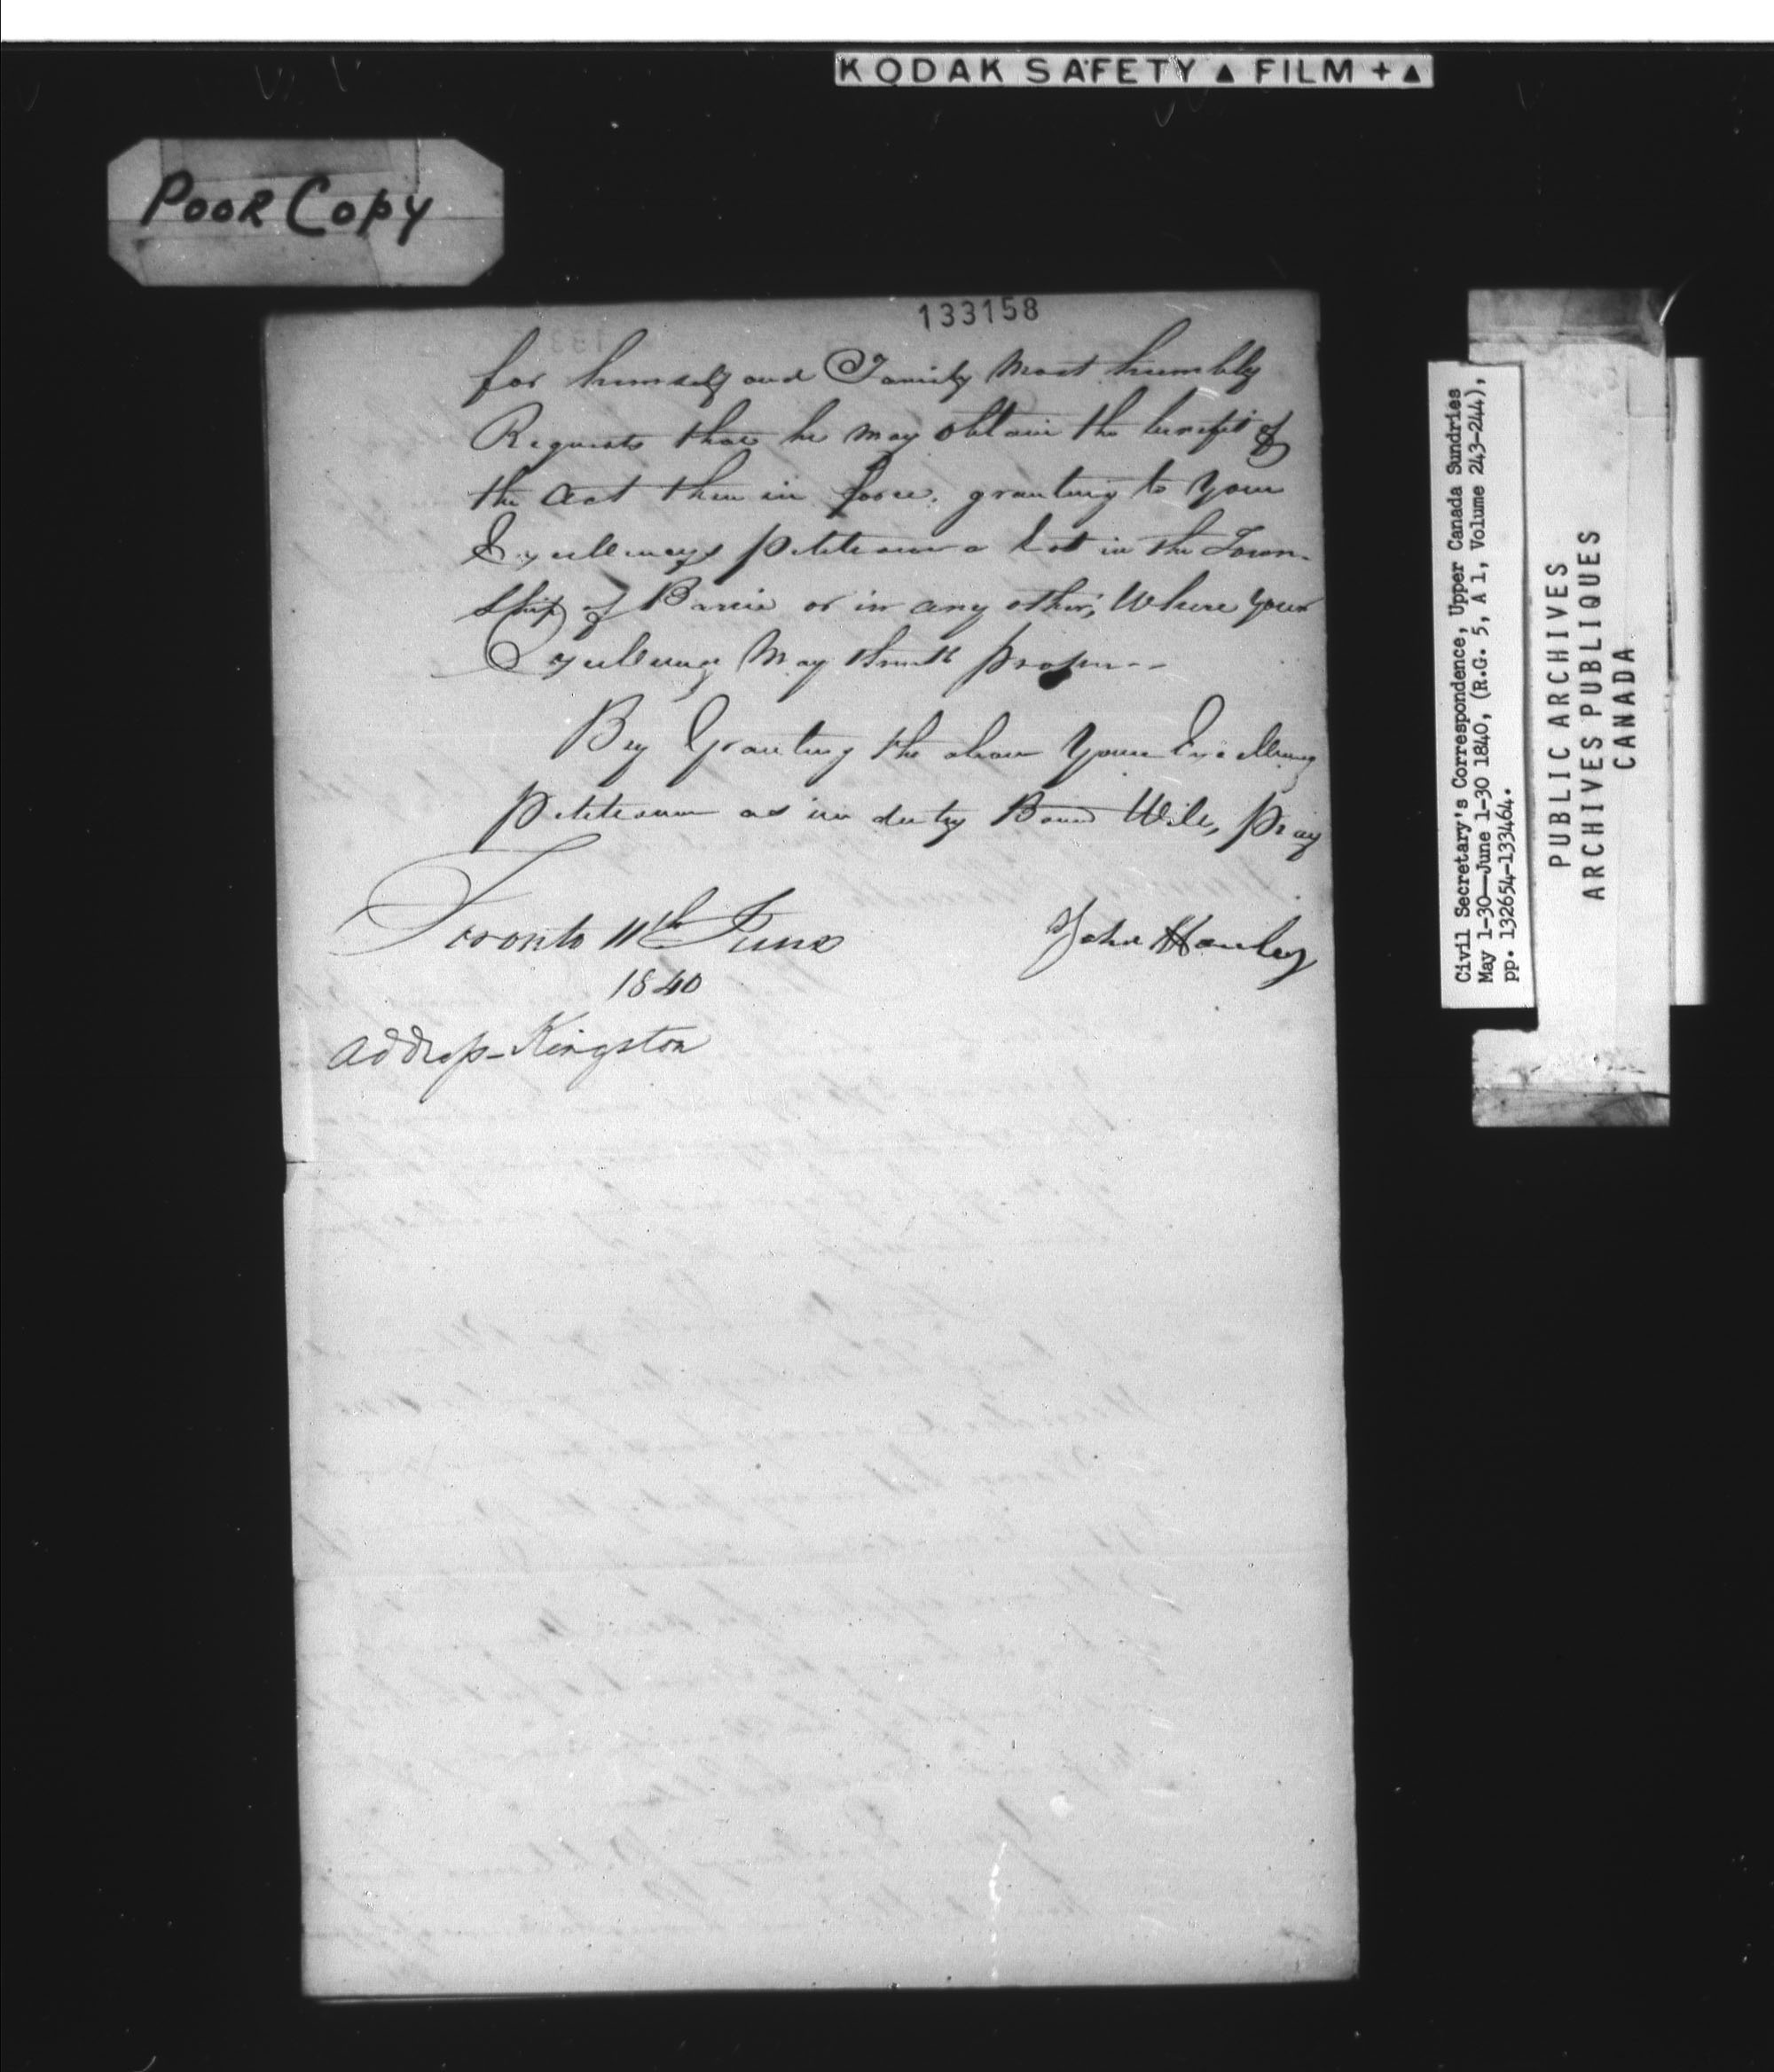 KODAK SAFETY ▲ FILM + ▲
POOR COPY
133158
for himself and Family Most humbly
Requests that he may obtain the benefit of
the Act then in force, granting to Your
Excellencys petitioner a Lot in the Town-
ship of Barrie or in any other, Where Your
Excellency May think proper --
By Granting the above Your Excellency
petitioner as in duty Bound Will, pray
Toronto 11th June
1840
John Hawley
Address - Kingston
Civil Secretary's Correspondence, Upper Canada Sundries
May 1-30—June 1-30 1840, (R.G. 5, A 1, Volume 243-244),
pp. 132654-133464.
PUBLIC ARCHIVES
ARCHIVES PUBLIQUES
CANADA